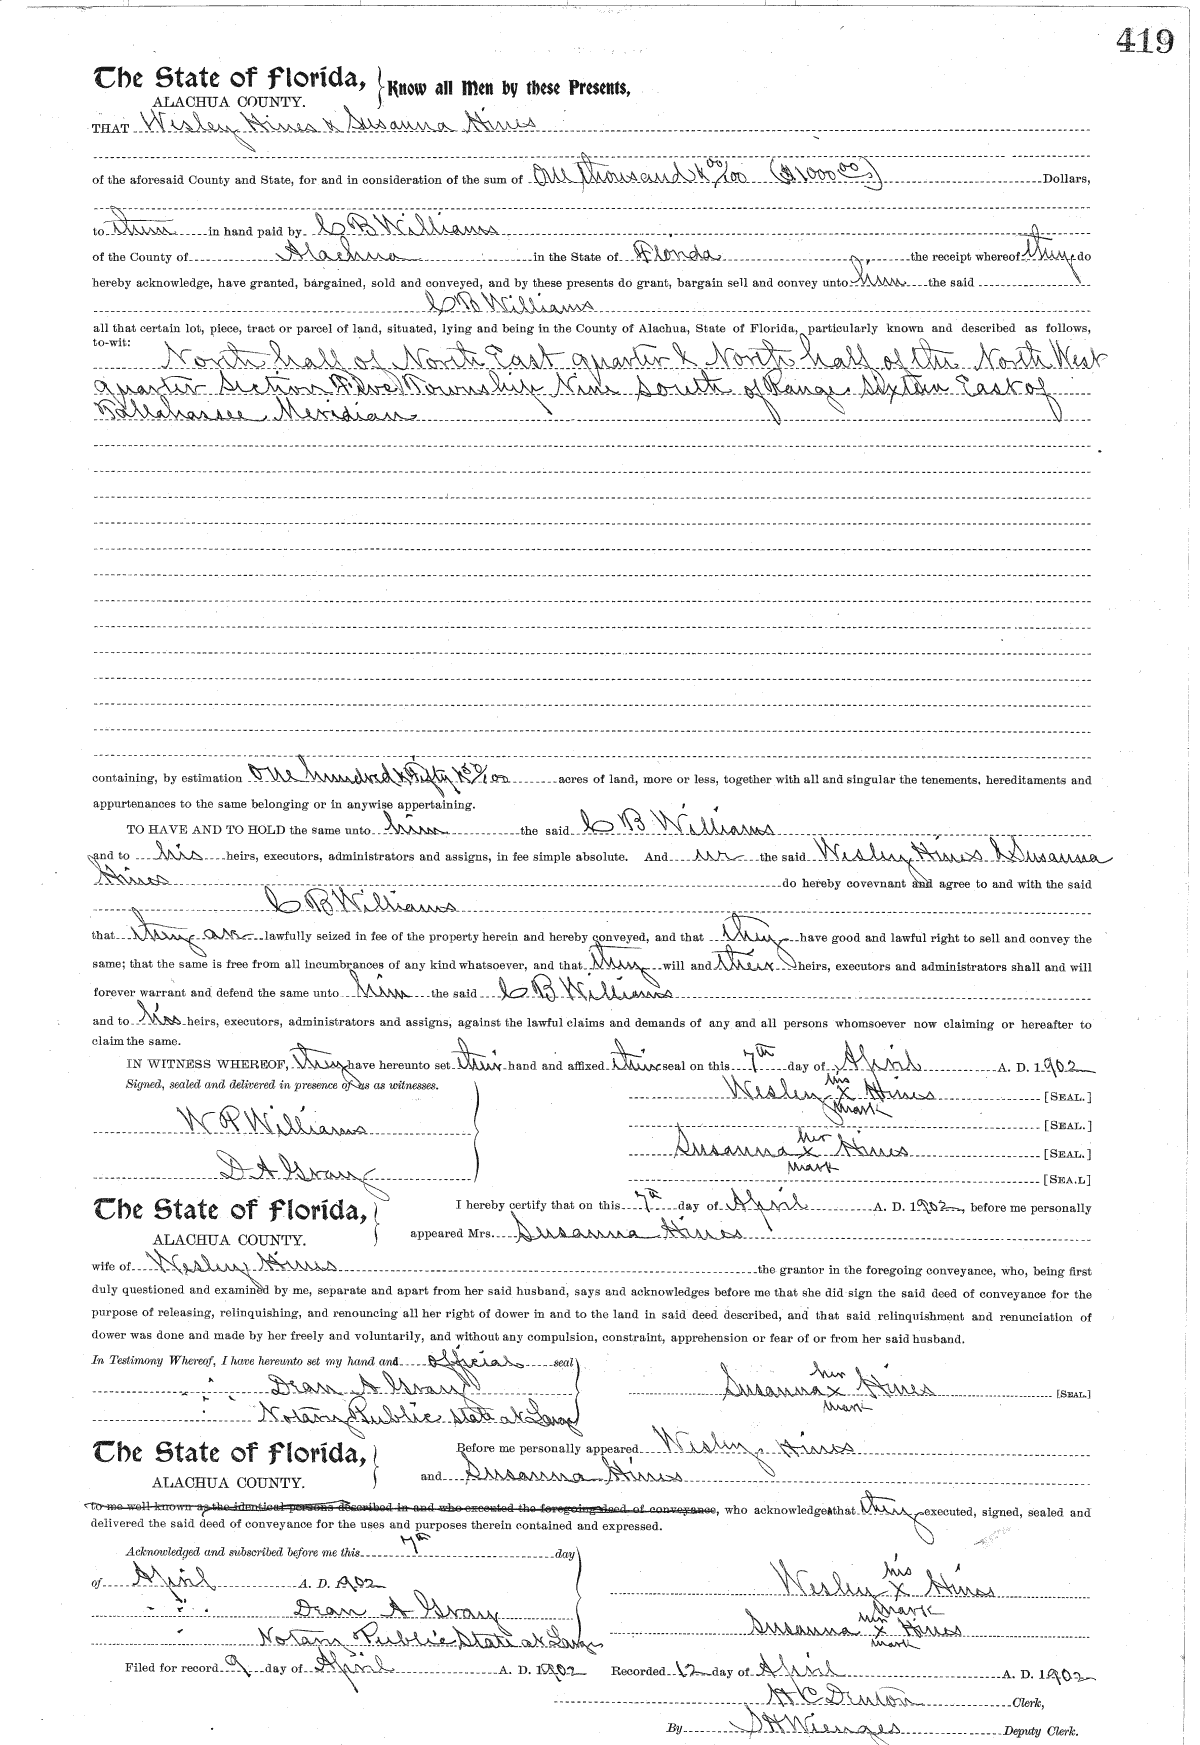 419
The State of Florida, Know all Men by these Presents,
ALACHUA COUNTY.
THAT Wesley Hines & Susanna Hines
of the aforesaid County and State, for and in consideration of the sum of One thousand & 00/100 ($1000 00) Dollars,
to them in hand paid by C B Williams
of the County of Alachua in the State of Florida the receipt whereof they do
hereby acknowledge, have granted, bargained, sold and conveyed, and by these presents do grant, bargain sell and convey unto him the said
C B Williams
all that certain lot, piece, tract or parcel of land, situated, lying and being in the County of Alachua, State of Florida, particularly known and described as follows,
to-wit:
North half of North East quarter & North half of the North West
quarter Section Five Township Nine South of Range Sixteen East of
Tallahassee Meridian
containing, by estimation One hundred & Fifty & acres of land, more or less, together with all and singular the tenements, hereditaments and
appurtenances to the same belonging or in anywise appertaining.
TO HAVE AND TO HOLD the same unto him the said C B Williams
and to his heirs, executors, administrators and assigns, in fee simple absolute. And we the said Wesley Hines & Susanna
Hines do hereby covevnant and agree to and with the said
C B Williams
that they are lawfully seized in fee of the property herein and hereby conveyed, and that they have good and lawful right to sell and convey the
same; that the same is free from all incumbrances of any kind whatsoever, and that they will and their heirs, executors and administrators shall and will
forever warrant and defend the same unto him the said C B Williams
and to his heirs, executors, administrators and assigns, against the lawful claims and demands of any and all persons whomsoever now claiming or hereafter to
claim the same.
IN WITNESS WHEREOF, they have hereunto set their hand and affixed their seal on this 7th day of April A. D. 1902
Signed, sealed and delivered in presence of us as witnesses.
Wesley his X mark Hines [SEAL.]
W R Williams
[SEAL.]
Susanna her x mark Hines [SEAL.]
D A Gray
[SEAL]
The State of Florida, I hereby certify that on this 7th day of April A. D. 1902, before me personally
ALACHUA COUNTY. appeared Mrs. Susanna Hines
wife of Wesley Hines the grantor in the foregoing conveyance, who, being first
duly questioned and examined by me, separate and apart from her said husband, says and acknowledges before me that she did sign the said deed of conveyance for the
purpose of releasing, relinquishing, and renouncing all her right of dower in and to the land in said deed described, and that said relinquishment and renunciation of
dower was done and made by her freely and voluntarily, and without any compulsion, constraint, apprehension or fear of or from her said husband.
In Testimony Whereof, I have hereunto set my hand and official seal
Dean A Gray Susanna her x mark Hines [SEAL.]
Notary Public State at Large
The State of Florida, Before me personally appeared Wesley Hines
ALACHUA COUNTY. and Susanna Hines
to me well known as the identical persons described in and who executed the foregoing deed of conveyance, who acknowledge that they executed, signed, sealed and
delivered the said deed of conveyance for the uses and purposes therein contained and expressed.
Acknowledged and subscribed before me this 7th day
of April A. D. 1902 Wesley his X mark Hines
Dean A Gray Susanna her x mark Hines
Notary Public State at Large
Filed for record 9 day of April A. D. 1902 Recorded 12 day of April A. D. 1902
H C Denton Clerk,
By S H Wienges Deputy Clerk.